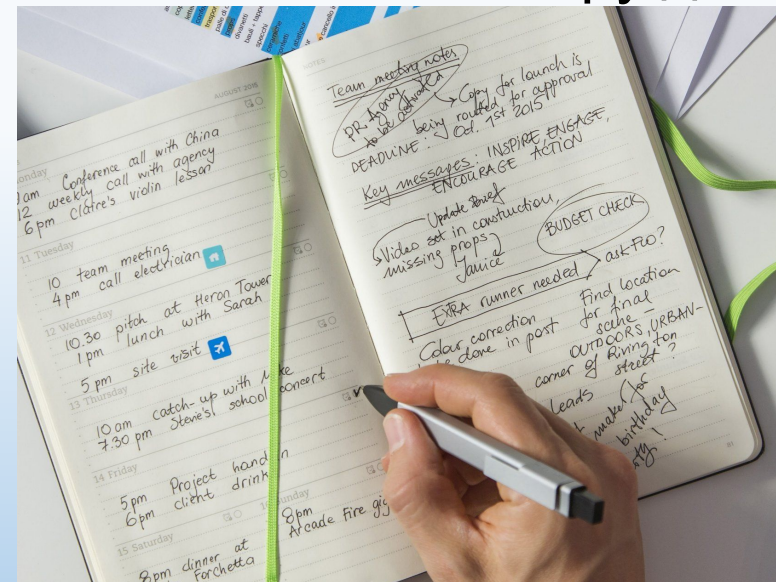 AUGUST 2015
9 am Conference call with China
12 weekly call with agency
6pm Claire's violin lesson
11 Tuesday
10 team meeting
4pm call electrician
12 Wednesday
10.30 pitch at Heron Tower
1pm lunch with Sarah
5pm site visit
13 Thursday
10am catch-up with Mike
7.30 pm Steve's school concert
14 Friday
5pm Project hand in
6pm client drink
15 Saturday
8pm dinner at
Forchetta
Sunday
8pm
Arcade Fire gig
NOTES
Team meeting notes
PR Agency
to be activated
Copy for launch is
being routed for approval
DEADLINE: Oct. 1st 2015
Key messages: INSPIRE, ENGAGE,
ENCOURAGE ACTION
Update Brief
Video set in construction,
missing props
Janice
BUDGET CHECK
EXTRA runner needed
ask Flo?
Colour correction
done in post
Find location
for final
scene –
OUTDOORS, URBAN –
corner of Rivington
street?
leads
maker for
birthday